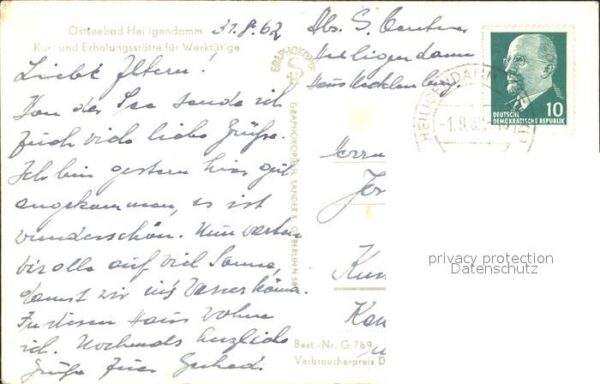 Ostseebad Heiligendamm 31.8.62
Kur- und Erholungsstätte für Werktätige
Liebe Eltern!
Von der See sende ich
Euch viele liebe Grüße.
Ich bin gestern hier gut
angekommen, es ist
wunderschön. Nun warten
wir alle auf viel Sonne,
damit wir ins Wasser können.
In diesem Haus wohne
ich. Nochmals herzliche
Grüße Euer Gerhard.
Abs. G.
Heiligendamm
Haus Mecklenburg
GRAPHOKOPIE
GRAPHOKOPIE H. SANDER K. G. BERLIN N
HEILIGENDAMM
-1.9.62
10
DEUTSCHE
DEMOKRATISCHE REPUBLIK
Herrn
Best.-Nr. G 769
Verbraucherpreis D
privacy protection
Datenschutz